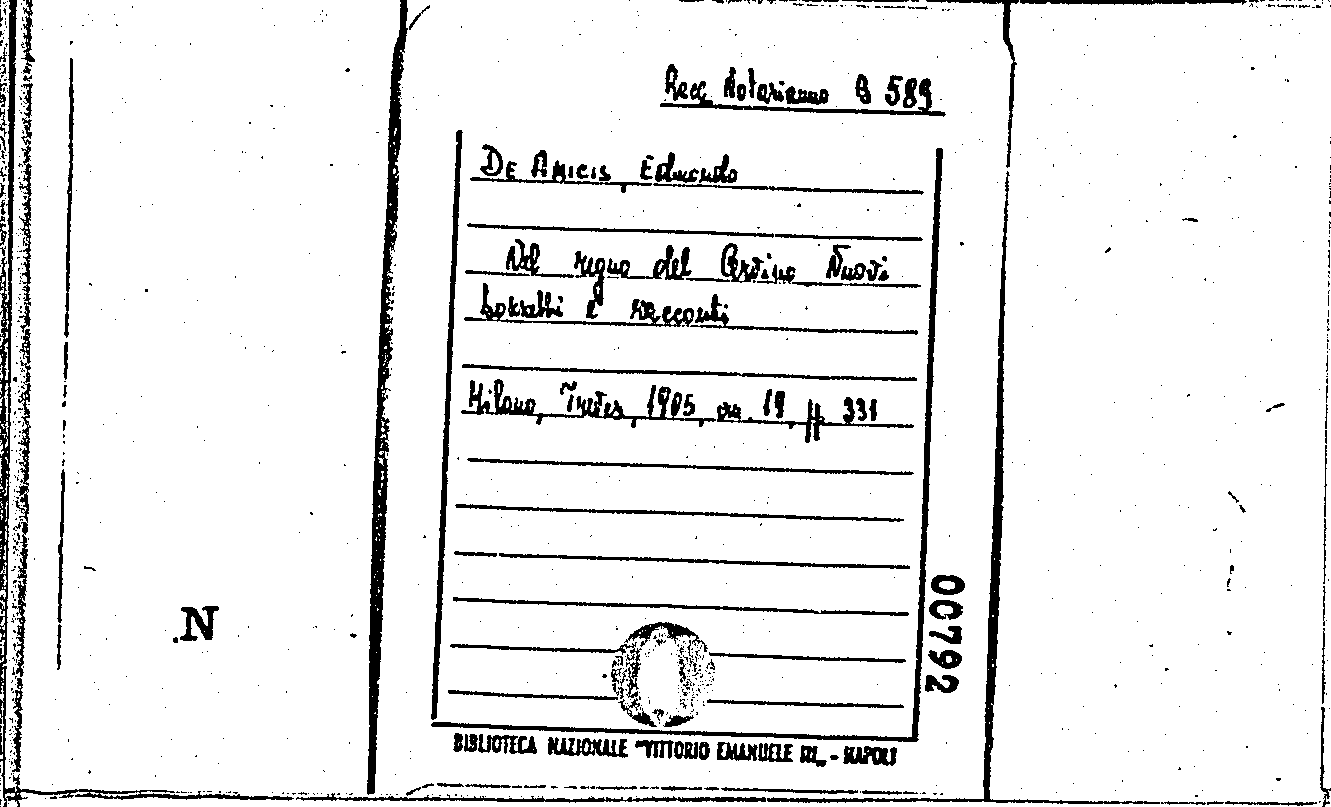 Racc. Notarianno B 589
De Amicis, Edmondo
Nel regno del Cervino Nuovi
bozzetti e racconti
Milano, Treves, 1905, cm. 19, pp. 331
00792
N
BIBLIOTECA NAZIONALE "VITTORIO EMANUELE III„ - NAPOLI